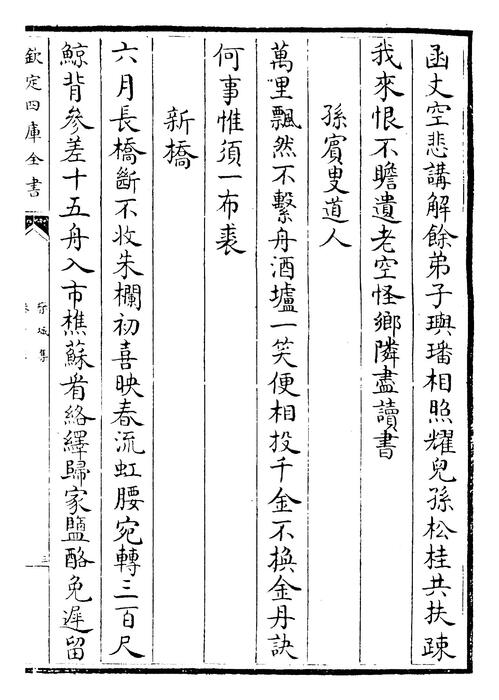 函丈空悲講解餘弟子璵璠相照耀兒孫松桂共扶踈
我來恨不瞻遺老空怪鄉隣盡讀書
孫賓叟道人
萬里飄然不繫舟酒壚一笑便相投千金不換金丹訣
何事惟須一布裘
新橋
六月長橋斷不收朱欄初喜映春流虹腰宛轉三百尺
鯨背參差十五舟入市樵蘇看絡繹歸家鹽酪免遲留
欽定四庫全書